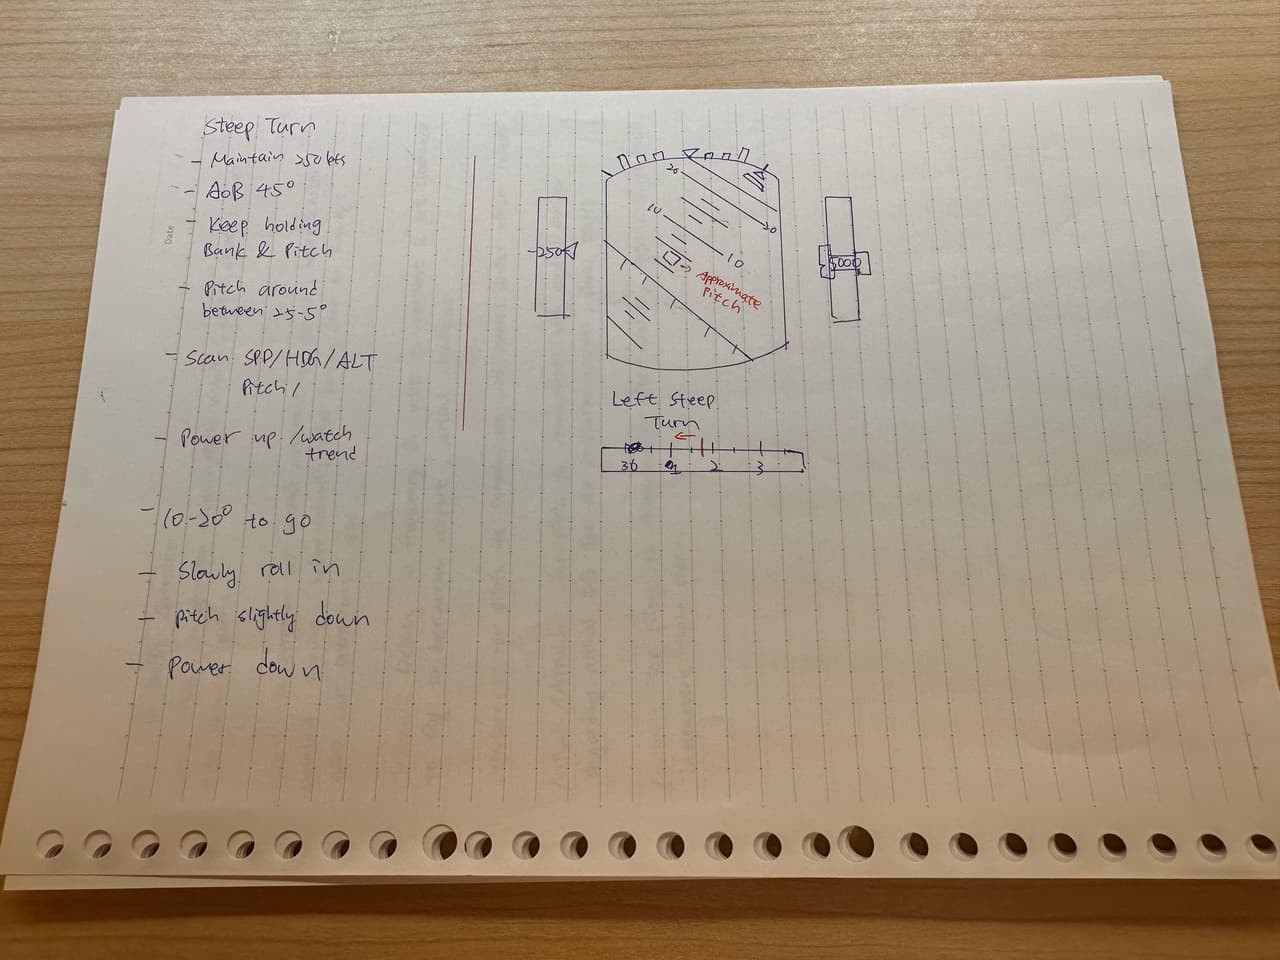 Steep Turn
- Maintain 250 kts
- AoB 45°
- Keep holding
Bank & Pitch
- Pitch around
between 25-5°
- Scan SPD/HDG/ALT
Pitch/
- Power up /watch
trend
- 10-20° to go
- Slowly roll in
- Pitch slightly down
- Power down
Date
20
20
10
10
250
5000
Approximate
Pitch
Left Steep
Turn
36 1 2 3